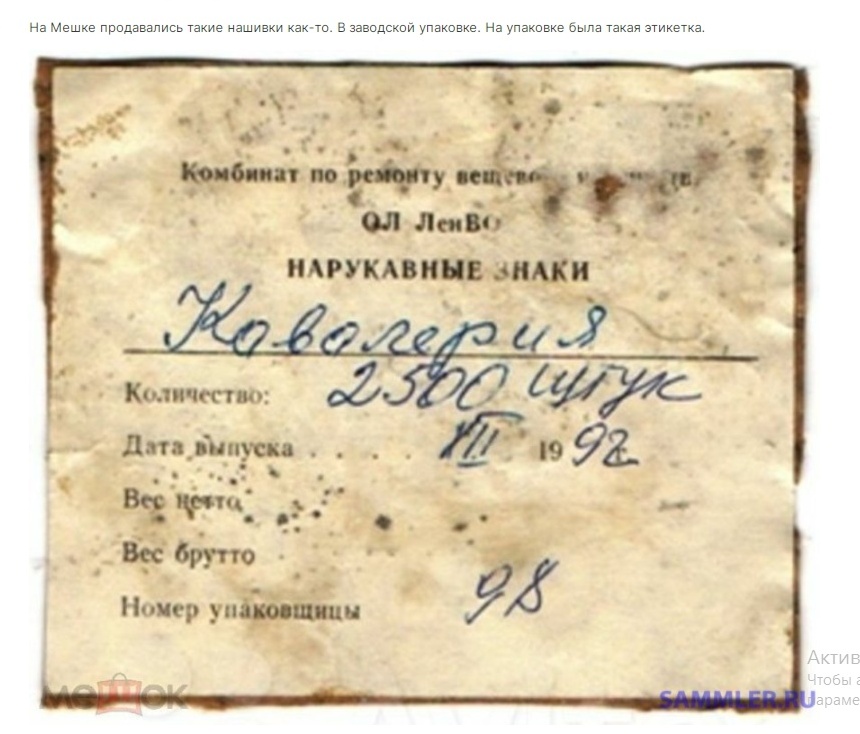 На Мешке продавались такие нашивки как-то. В заводской упаковке. На упаковке была такая этикетка.
Комбинат по ремонту
ОЛ ЛенВО
НАРУКАВНЫЕ ЗНАКИ
Кавалерия
Количество: 2500 штук
Дата выпуска . . . . 1992
Вес нетто
Вес брутто
Номер упаковщицы 98
МЕШОК
SAMMLER.RU
Актив
Чтобы а
параме